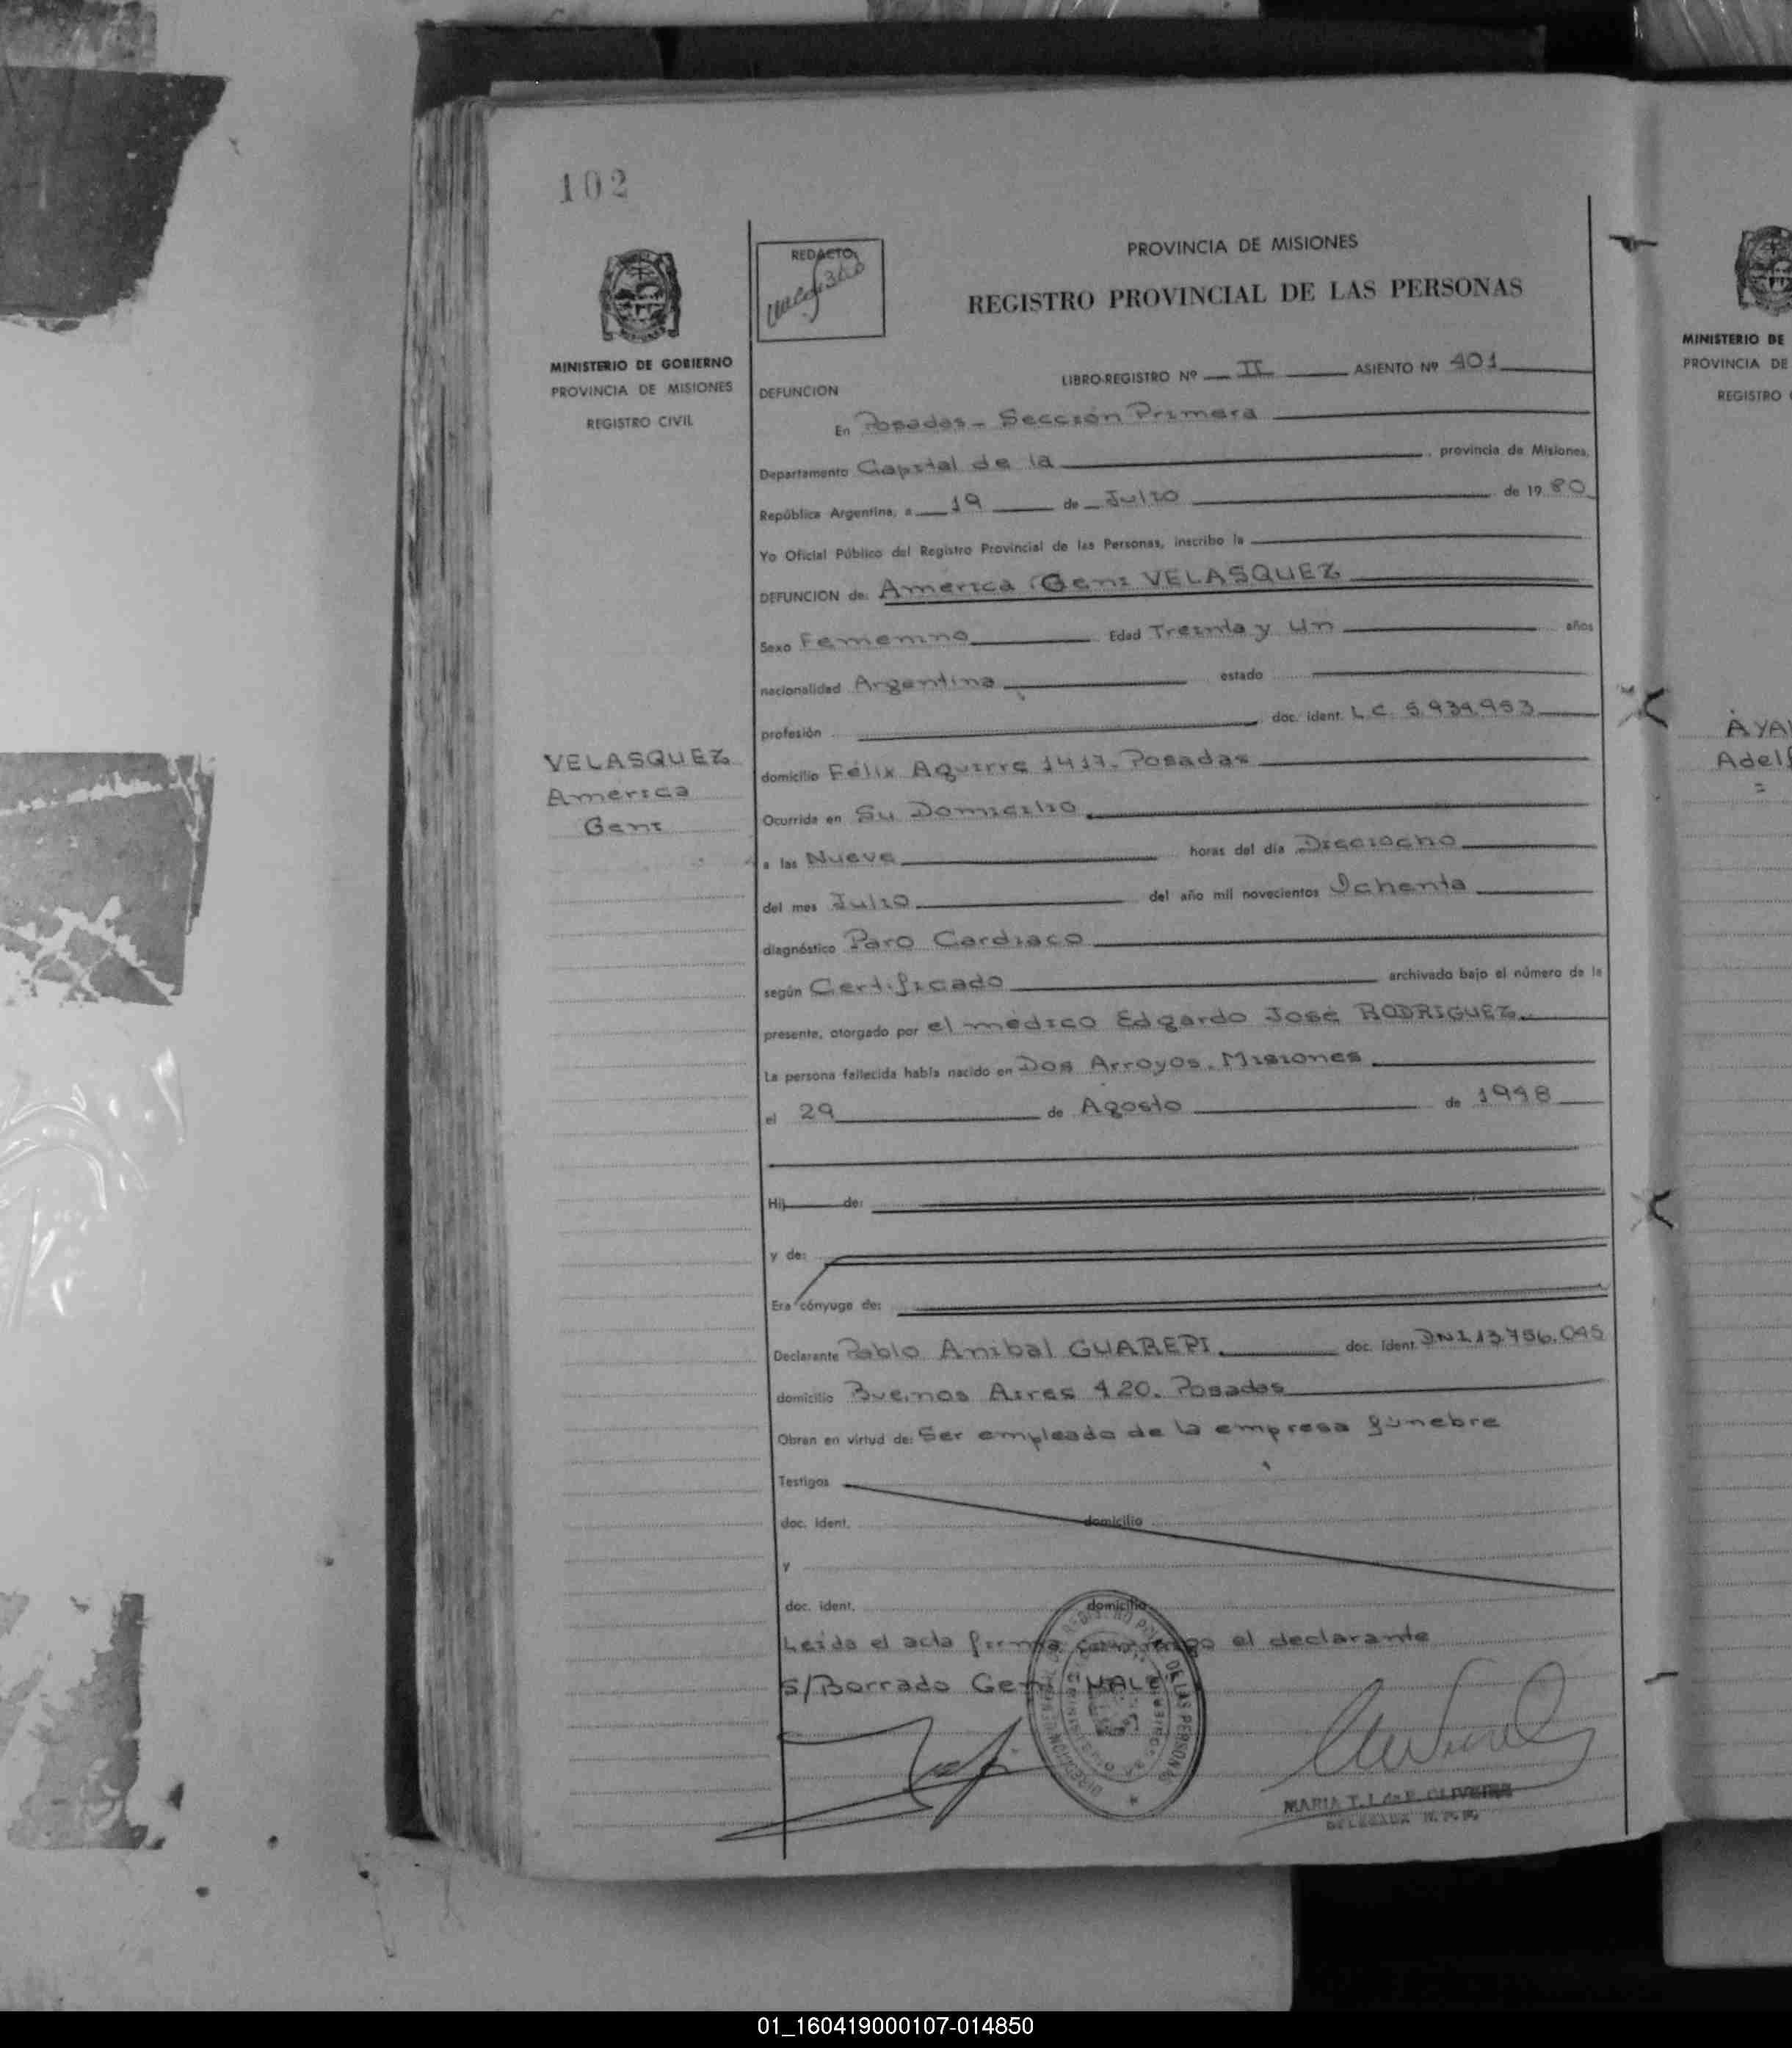 102
MINISTERIO DE GOBIERNO
PROVINCIA DE MISIONES
REGISTRO CIVIL
VELASQUEZ
America
Geni
REDACTO
PROVINCIA DE MISIONES
REGISTRO PROVINCIAL DE LAS PERSONAS
LIBRO-REGISTRO Nº II ASIENTO Nº 401
DEFUNCION
En Posadas - Sección Primera
Departamento Capital de la, provincia de Misiones,
República Argentina, a 19 de Julio de 1980
Yo Oficial Público del Registro Provincial de las Personas, inscribo la
DEFUNCION de: America Geni VELASQUEZ
Sexo Femenino Edad Treinta y Un años
nacionalidad Argentina estado
profesión doc. ident. L.C. 5.939.953
domicilio Félix Aguirre 1417. Posadas
Ocurrida en Su Domicilio
a las Nueve horas del día Dieciocho
del mes Julio del año mil novecientos Ochenta
diagnóstico Paro Cardiaco
según Certificado archivado bajo el número de la
presente, otorgado por el médico Edgardo José RODRIGUEZ.
La persona fallecida había nacido en Dos Arroyos. Misiones
el 29 de Agosto de 1948
Hij de:
y de:
Era cónyuge de:
Declarante Pablo Anibal GUAREPI. doc. ident. DNI 13.756.045
domicilio Buenos Aires 420. Posadas
Obran en virtud de: Ser empleado de la empresa fúnebre
Testigos
doc. ident. domicilio
y
doc. ident. domicilio
Leida el acta firma conmigo el declarante
S/Borrado Geni VALE
MARIA T. OLIVEIRA
MINISTERIO DE
PROVINCIA DE
REGISTRO
AYA
Adel
01_160419000107-014850